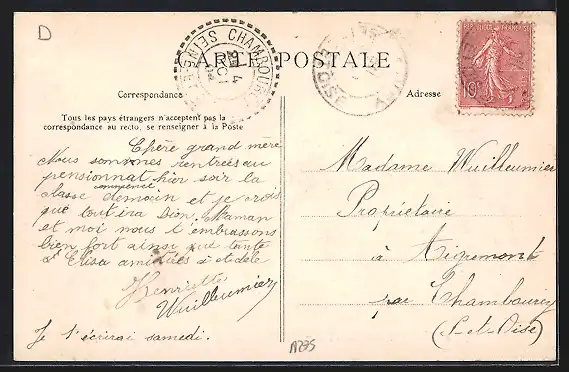 D
CARTE POSTALE
SEINE CHAMBOURCY
4
OCT
Correspondance
Adresse
10c
Tous les pays étrangers n'acceptent pas la
correspondance au recto, se renseigner à la Poste
Chère grand mère
Nous sommes rentrées au
pensionnat hier soir la
classe commence demain et je crois
que tout ira bien. Maman
et moi nous t'embrassons
bien fort ainsi que tante
Elisa amitiés à
Henriette
Wuilleumier
Je t'écrirai samedi.
Madame Wuilleumier
Propriétaire
à Aigremont
par Chambourcy
(S-et-Oise)